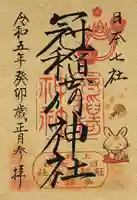 日本七社
冠稲荷神社
令和五年癸卯歳正月参拝